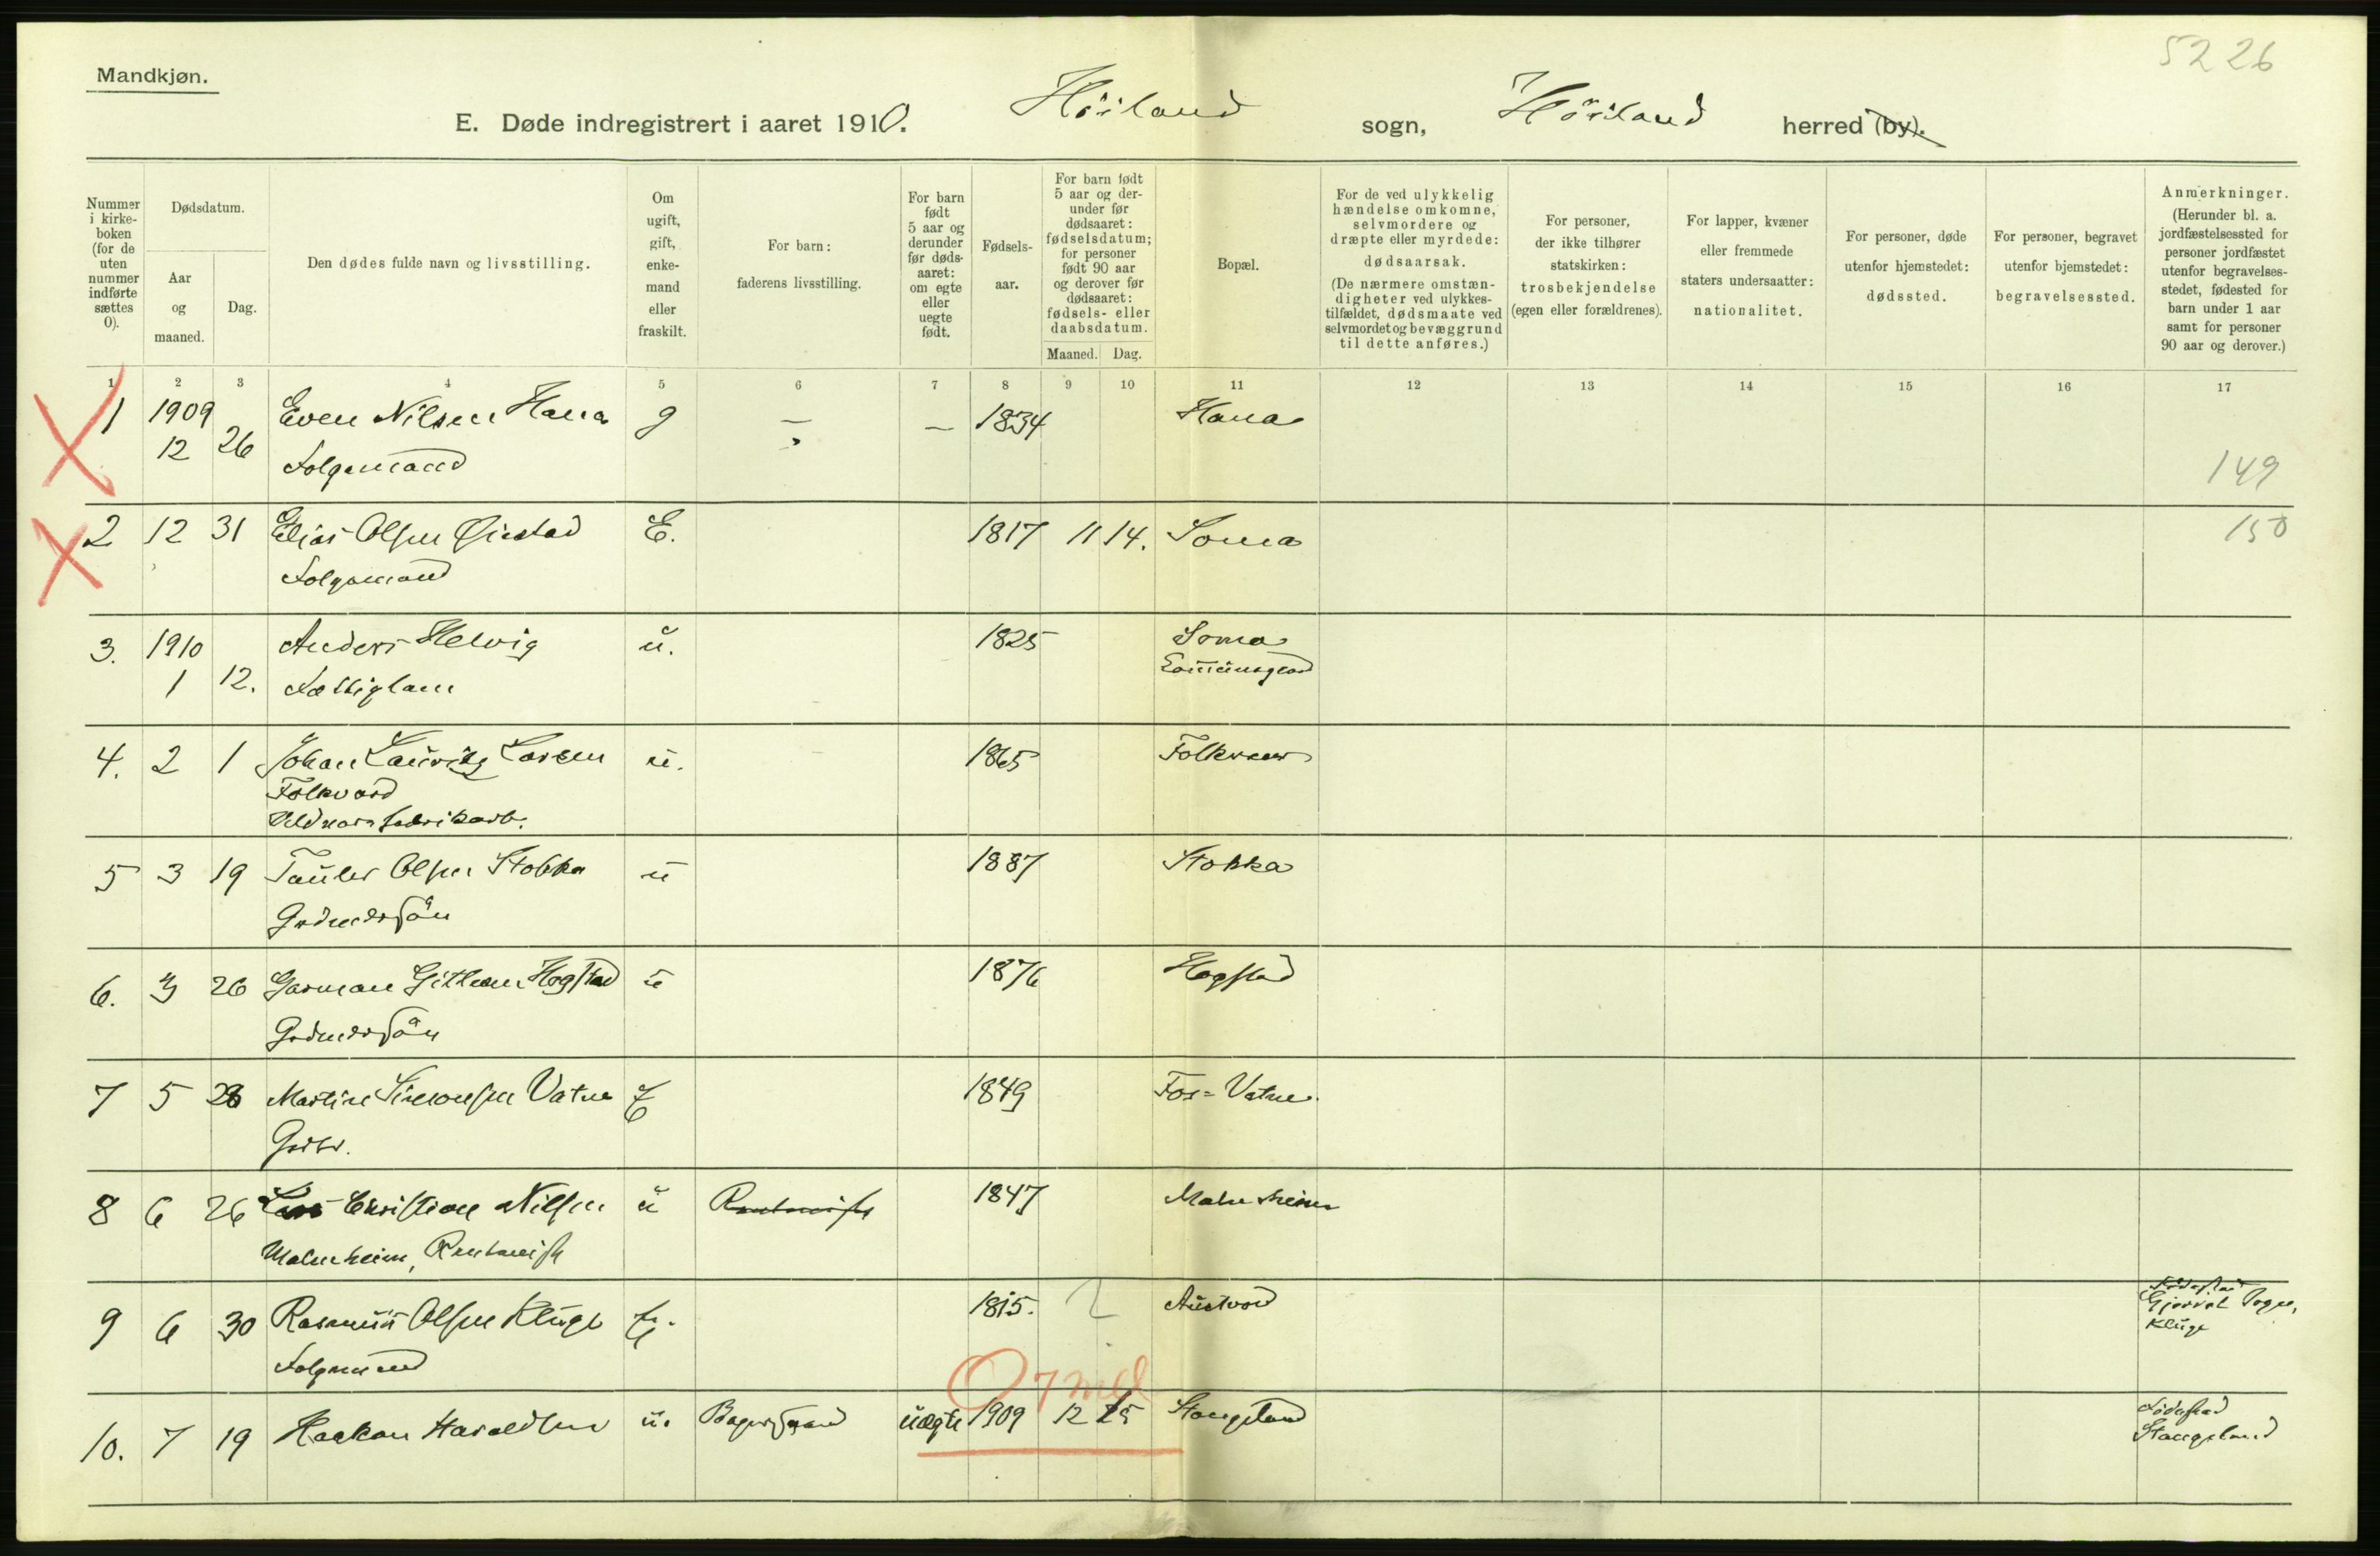 5226
Mandkjøn.
E. Døde indregistrert i aaret 1910. Höiland sogn, Höiland herred (by).
Nummer i kirke-boken (for de uten nummer indførte sættes 0).
Dødsdatum.
Aar og maaned.
Dag.
Den dødes fulde navn og livsstilling.
Om ugift, gift, enke-mand eller fraskilt.
For barn: faderens livsstilling.
For barn født 5 aar og derunder før døds-aaret: om egte eller uegte født.
Fødsels-aar.
For barn født 5 aar og der-under før dødsaaret: fødselsdatum; for personer født 90 aar og derover før dødsaaret: fødsels- eller daabsdatum.
Maaned. Dag.
Bopæl.
For de ved ulykkelig hændelse omkomne, selvmordere og dræpte eller myrdede: dødsaarsak. (De nærmere omstæn-digheter ved ulykkes-tilfældet, dødsmaate ved selvmordet og bevæggrund til dette anføres.)
For personer, der ikke tilhører statskirken: trosbekjendelse (egen eller forældrenes).
For lapper, kvæner eller fremmede staters undersaatter: nationalitet.
For personer, døde utenfor hjemstedet: dødssted.
For personer, begravet utenfor hjemstedet: begravelsessted.
Anmerkninger. (Herunder bl. a. jordfæstelsessted for personer jordfæstet utenfor begravelses-stedet, fødested for barn under 1 aar samt for personer 90 aar og derover.)
1 2 3 4 5 6 7 8 9 10 11 12 13 14 15 16 17
1 1909 Even Nilsen Hana g — — 1834 Hana
12 26 Folgemand 149
2 12 31 Elias Olsen Öiestad E. 1817 11 14. Soma 150
Folgemand
3. 1910 Anders Helvig u. 1825 Soma
1 12. Fattiglem
4. 2 1 Johan Lauritz Larsen u. 1865
Folkvord
5 3 19 Tauler Olsen Stokka u 1887 Stokka
Grdmdssön
6. 3 26 Garman Gitlesen Hogstad u 1876 Hogstad
Grdmdssön
7 5 28 Martin Simonsen Vatne E 1849 Fos-Vatne
Grbr.
8 6 26 Christian Nilsen u 1847 Malmheim
Malmheim,
9 6 30 Rasmus Olsen Kluge E. 1815. Austvoll
Folgemand
Kluge
0 7 md
10. 7 19 Haakon Haraldsen u. Bagersvend uægte 1909 12 15 Stangeland
Födested
Stangeland